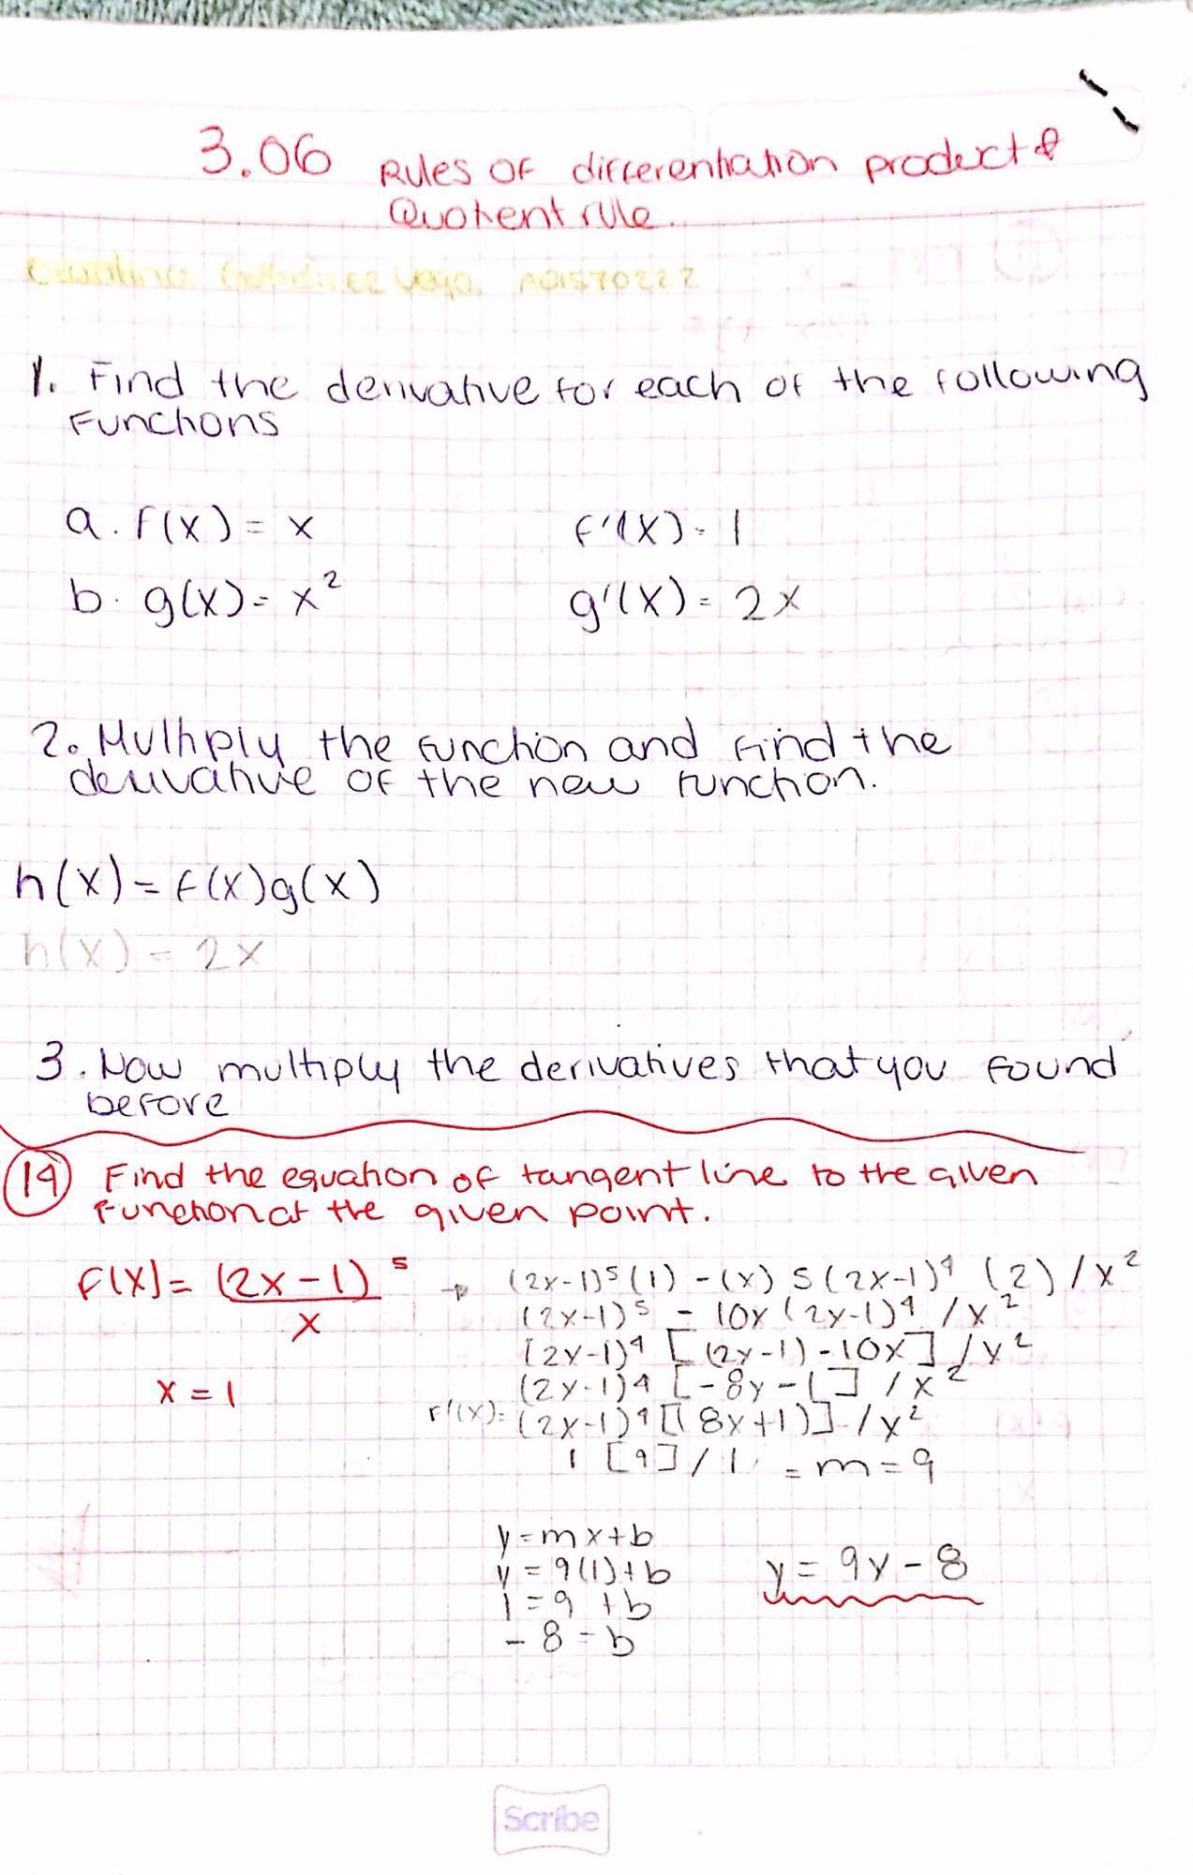 3.06 Rules of differentiation product &
Quotient rule.
1. Find the derivative for each of the following
Functions
a. f(x) = x f'(x) = 1
b. g(x) = x² g'(x) = 2x
2. Multiply the function and find the
derivative of the new function.
h(x) = f(x)g(x)
h(x) = 2x
3. Now multiply the derivatives that you found
before
19 Find the equation of tangent line to the given
function at the given point.
f(x) = (2x-1)⁵ / x → (2x-1)⁵(1) - (x) 5(2x-1)⁴ (2) / x²
(2x-1)⁵ - 10x (2x-1)⁴ / x²
(2x-1)⁴ [(2x-1) - 10x] / x²
x = 1 (2x-1)⁴ [-8x-1] / x²
f'(x) = (2x-1)⁴ [(8x+1)] / x²
1 [9] / 1 = m = 9
y = mx + b
y = 9(1) + b y = 9x - 8
1 = 9 + b
-8 = b
Scribe